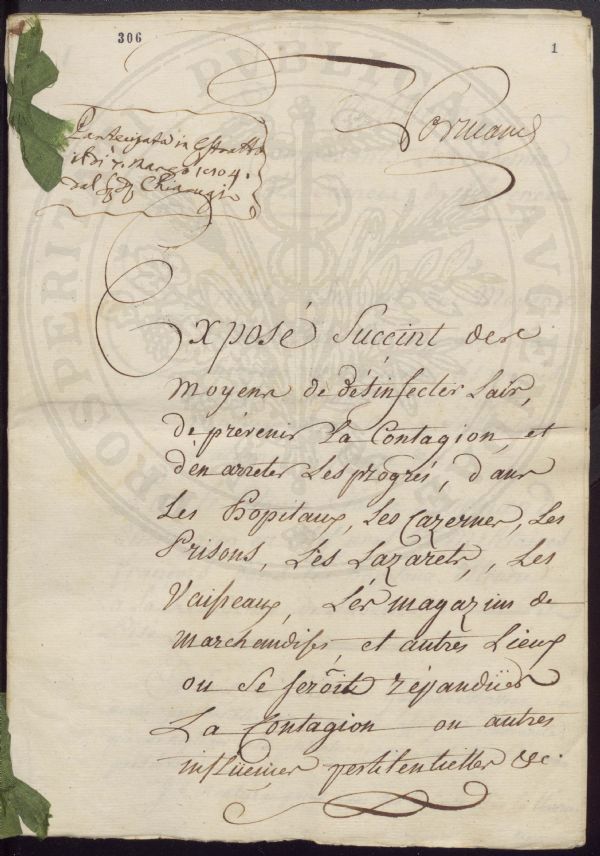 306
1
Partecipata in Estratto
il dì 7. Marzo 1804.
dal Chiarugi
Normand
Exposé Succint des
moyens de désinfecter Lair,
de prévenir la Contagion, et
dèn arreter Les progrés, dans
Les Hopitaux, Les Cazernes, Les
Prisons, Lés Lazarets, Les
Vaisseaux, Lés magazins de
marchandises, et autrès Lieux
ou Se seroit répandües
La Contagion ou autres
inflüences pestilentielles &c.
PUBLICAE
AUGE
PROSPERIT